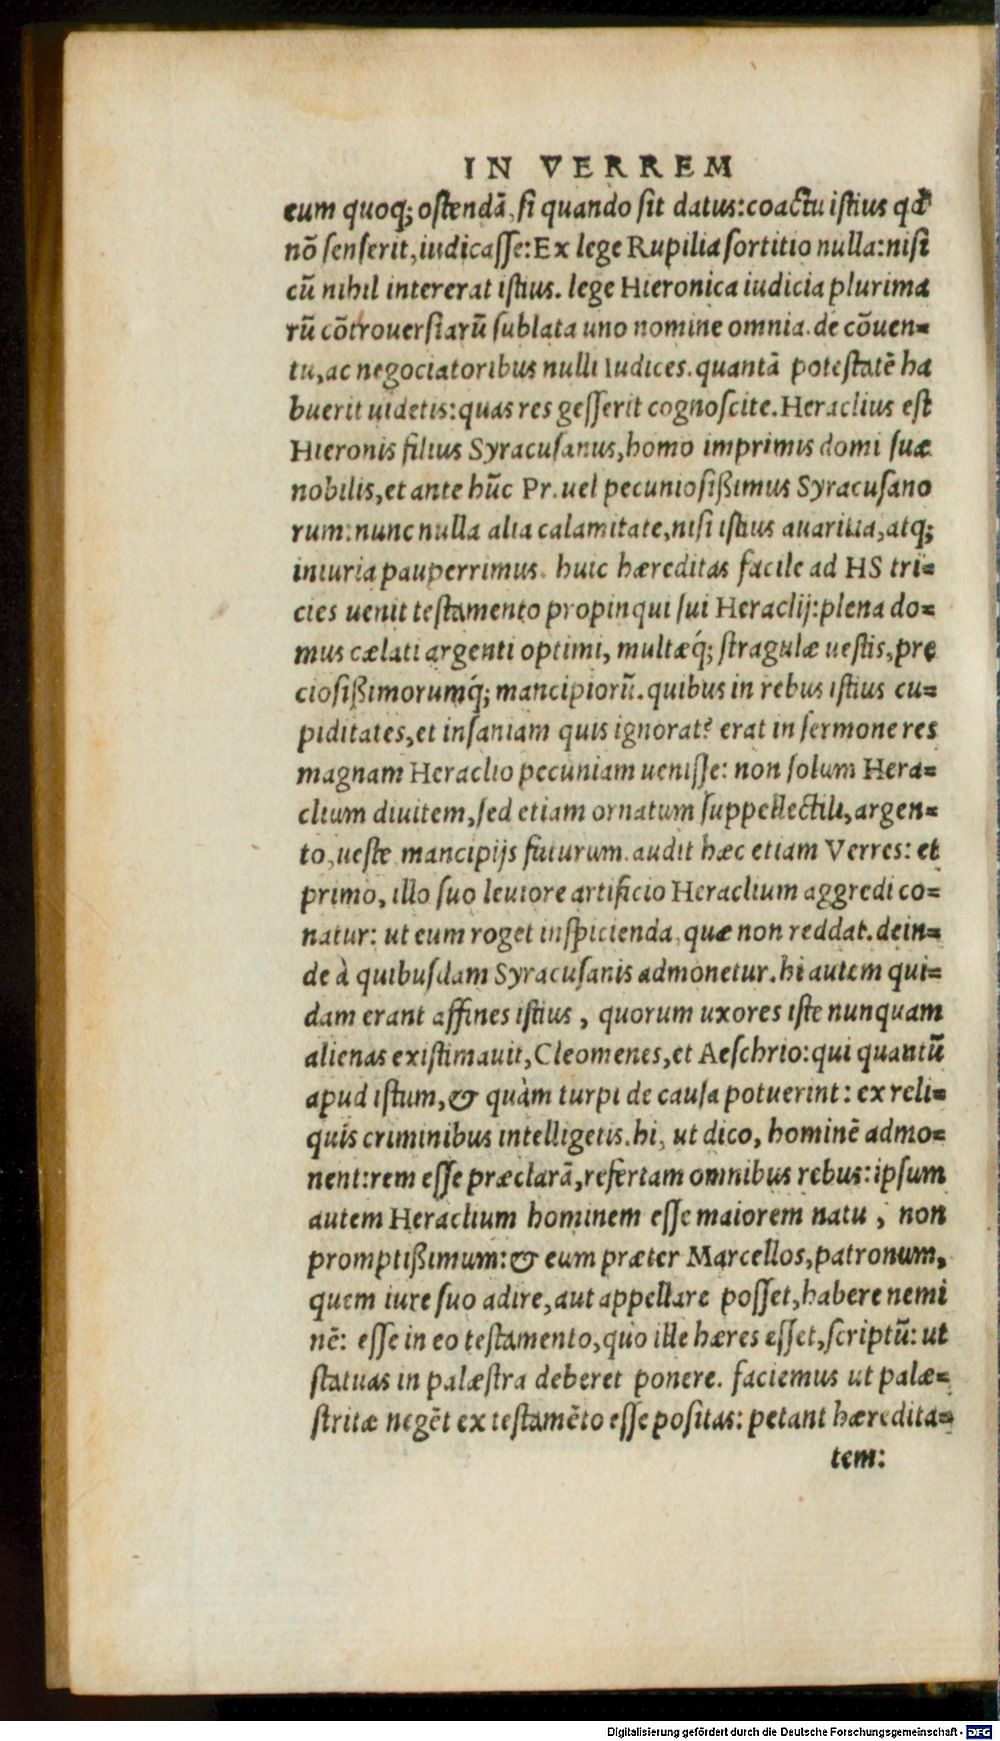 IN VERREM
eum quoq; ostendā, si quando sit datus: coactu istius qđ
nō senserit, iudicasse: Ex lege Rupilia sortitio nulla: nisi
cū nihil intererat istius. lege Hieronica iudicia plurima
rū cōtrouersiarū sublata uno nomine omnia. de cōuen=
tu, ac negociatoribus nulli iudices. quantā potestatē ha
buerit uidetis: quas res gesserit cognoscite. Heraclius est
Hieronis filius Syracusanus, homo imprimis domi suæ
nobilis, et ante hūc Pr. uel pecuniosißimus Syracusano
rum: nunc nulla alia calamitate, nisi istius auaritia, atq;
iniuria pauperrimus. huic hæreditas facile ad HS tri=
cies uenit testamento propinqui sui Heraclij: plena do=
mus cælati argenti optimi, multæq́; stragulæ uestis, prę
ciosißimorumq́; mancipiorū. quibus in rebus istius cu=
piditates, et insaniam quis ignorat? erat in sermone res
magnam Heraclio pecuniam uenisse: non solum Hera=
clium diuitem, sed etiam ornatum suppellectili, argen=
to, ueste mancipijs futurum. audit hæc etiam Verres: et
primo, illo suo leuiore artificio Heraclium aggredi co=
natur: ut eum roget inspicienda, quæ non reddat. dein=
de à quibusdam Syracusanis admonetur. hi autem qui=
dam erant affines istius, quorum uxores iste nunquam
alienas existimauit, Cleomenes, et Aeschrio: qui quantū
apud istum, & quàm turpi de causa potuerint: ex reli=
quis criminibus intelligetis. hi, ut dico, hominē admo=
nent: rem esse præclarā, refertam omnibus rebus: ipsum
autem Heraclium hominem esse maiorem natu, non
promptißimum: & eum præter Marcellos, patronum,
quem iure suo adire, aut appellare posset, habere nemi
nē: esse in eo testamento, quo ille hæres esset, scriptū: ut
statuas in palæstra deberet ponere. faciemus ut palæ=
stritæ negēt ex testamēto esse positas: petant hæredita=
tem:
Digitalisierung gefördert durch die Deutsche Forschungsgemeinschaft - DFG